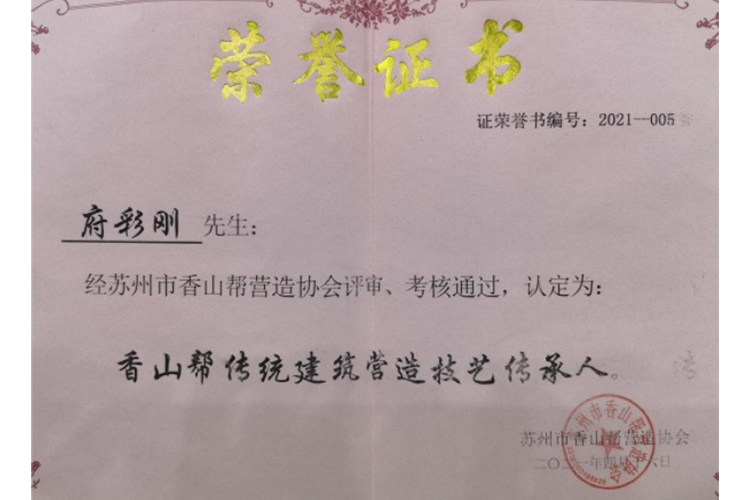 荣誉证书
证荣誉书编号：2021--005
府彩刚 先生：
经苏州市香山帮营造协会评审、考核通过，认定为：
香山帮传统建筑营造技艺传承人。
苏州市香山帮营造协会
二〇二一年四月十六日